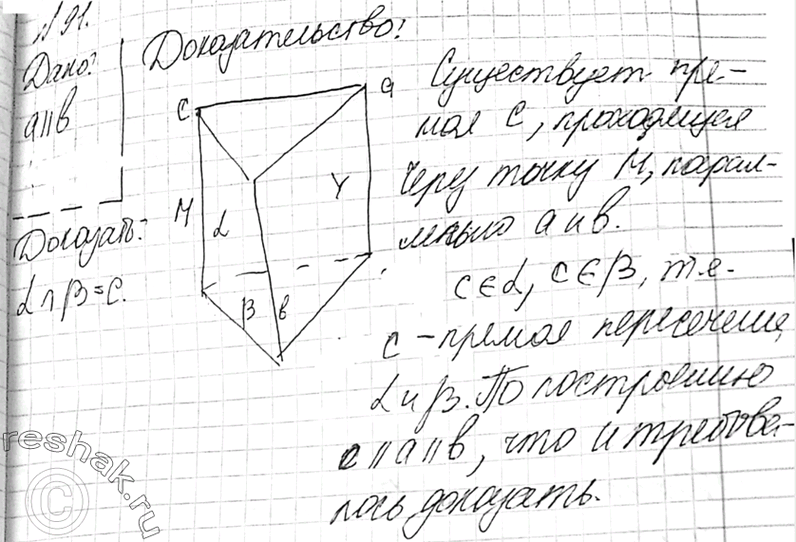 N 91.
Дано:
a∥b
Доказать:
α∩β=c.
Доказательство:
C
a
M
α
γ
β
b
Существует пря-
мая C, проходящая
через точку M, парал-
лельно a и b.
c∈α, c∈β, т.е.
c - прямая пересечения
α и β. По построению
c∥a∥b, что и требова-
лось доказать.
reshak.ru
©